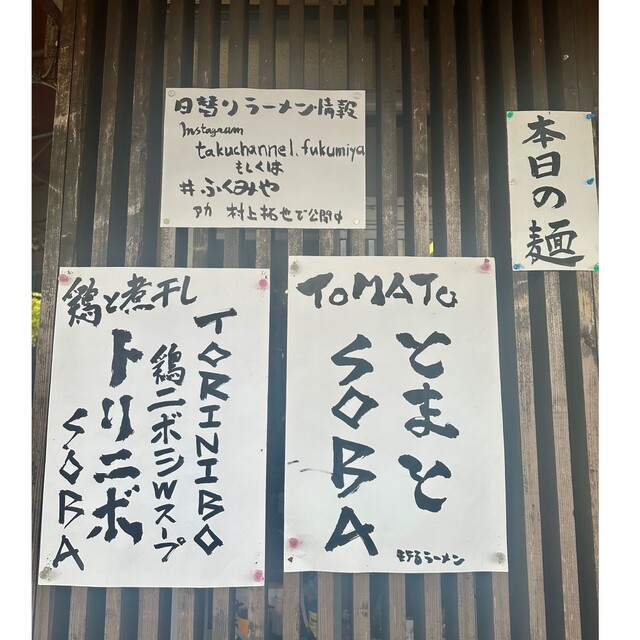 日替りラーメン情報
Instagram
takuchannel.fukumiya
もしくは
#ふくみや
アカ 村上拓也で公開中
本日の麺
鶏と煮干し
TORINIBO
鶏ニボシWスープ
トリニボ
SOBA
TOMATO
とまと
SOBA
ラーメン